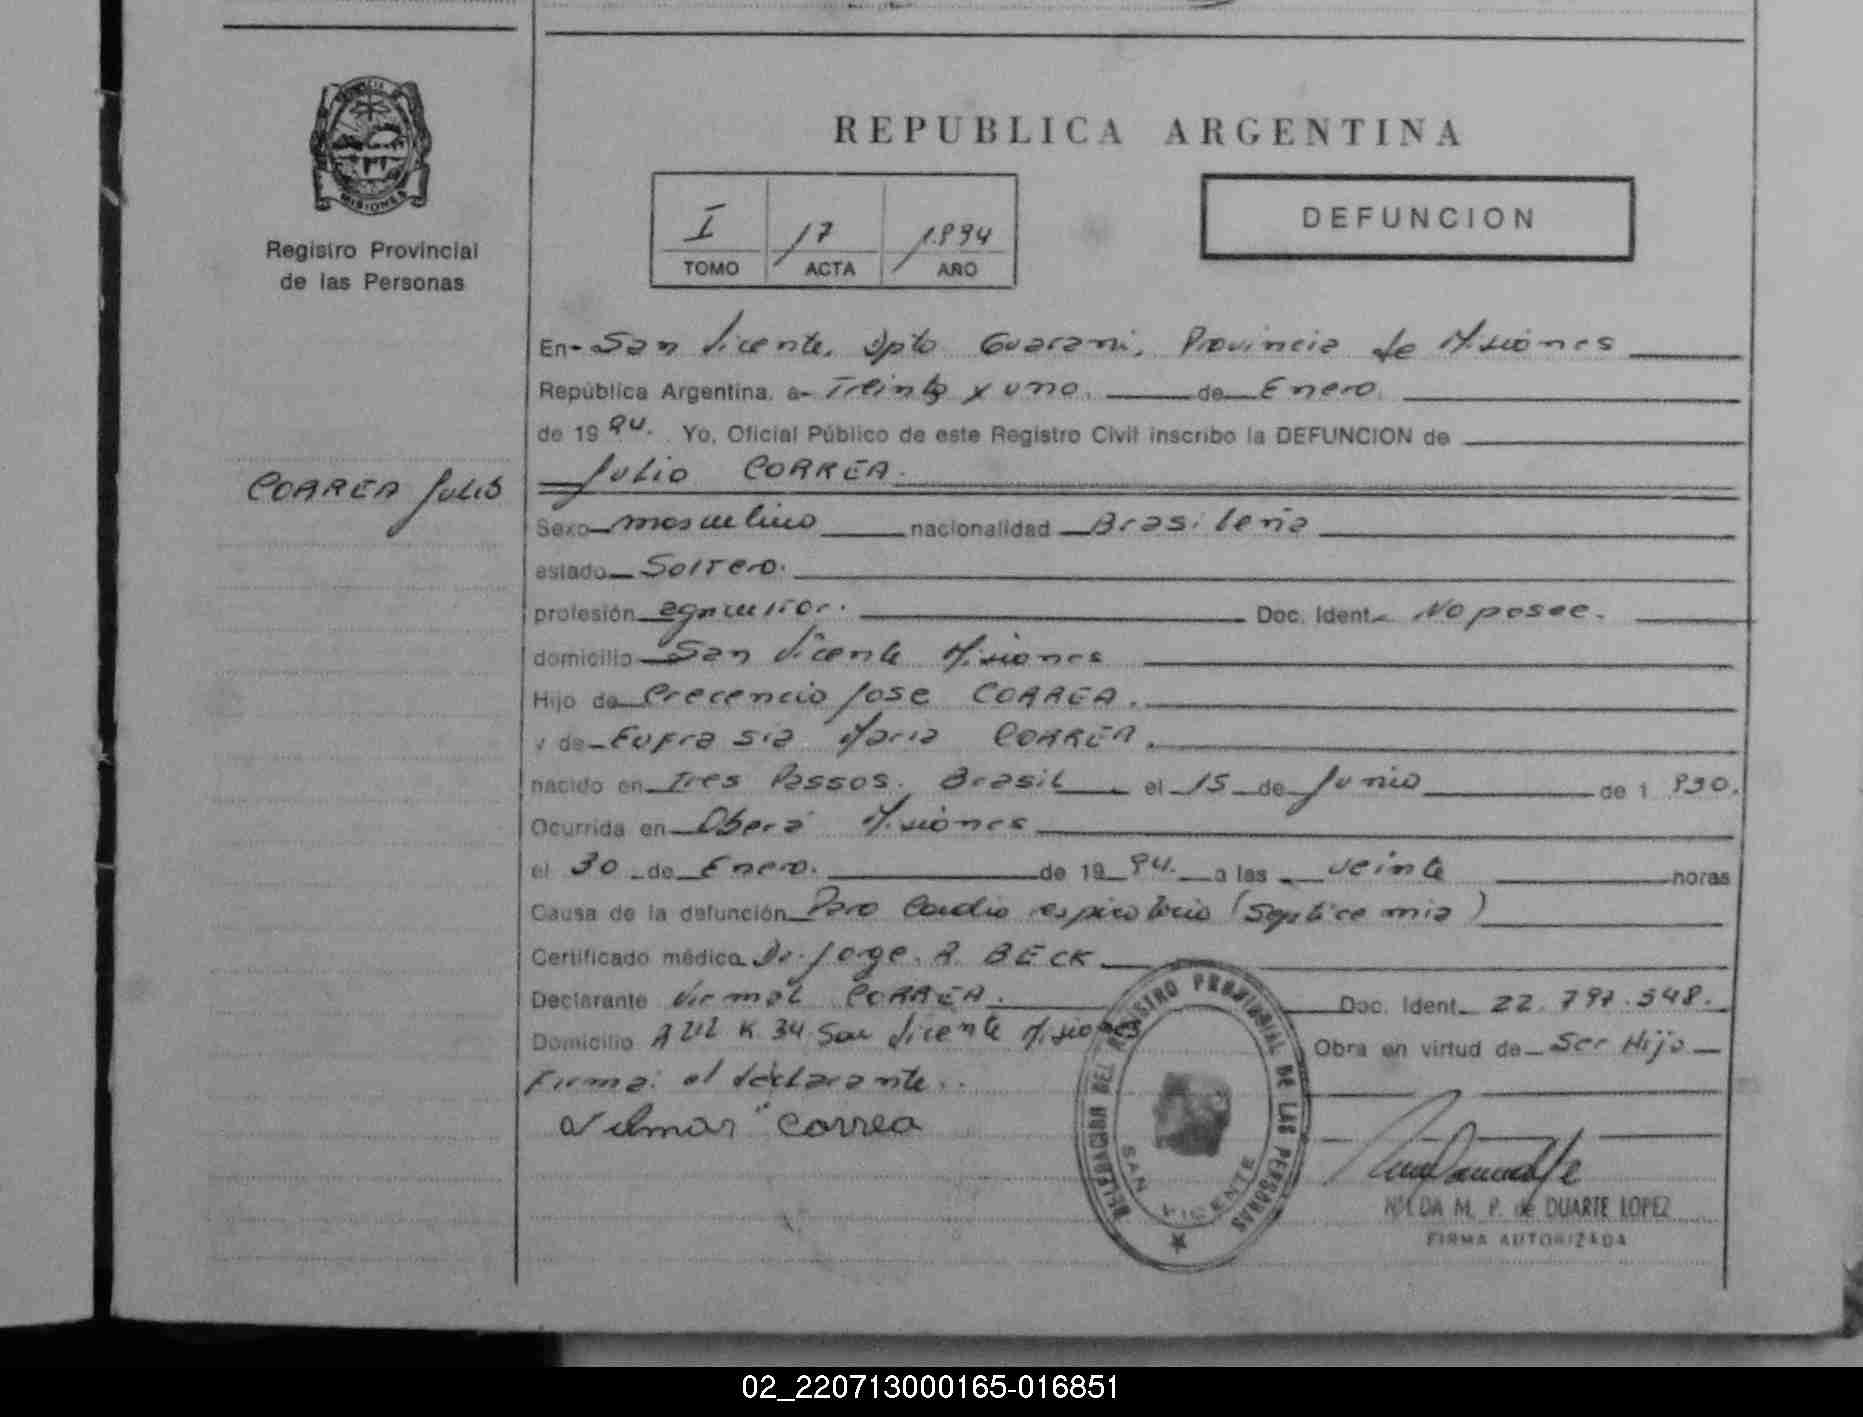 REPUBLICA ARGENTINA
MISIONES
Registro Provincial
de las Personas
I 17 1.994
TOMO ACTA AÑO
DEFUNCION
En San Vicente, Dpto Guarani, Provincia de Misiones
República Argentina, a Treinta y uno. de Enero.
de 19 94. Yo, Oficial Público de este Registro Civil inscribo la DEFUNCION de
CORREA Julio
Julio CORREA.
Sexo masculino nacionalidad Brasileña
estado Soltero.
profesión agricultor. Doc. Ident. No posee.
domicilio San Vicente Misiones
Hijo de Crecencio Jose CORREA.
y de Eufrasia Maria CORREA.
nacido en Tres Passos. Brasil el 15 de Junio de 1 930.
Ocurrida en Oberá Misiones
el 30 de Enero. de 19 94. a las veinte horas
Causa de la defunción Paro Cardio respiratorio (Septicemia)
Certificado médico Dr. Jorge. R. BECK
Declarante Virmal CORREA. Doc. Ident. 22.797.548.
Domicilio K. 34 San Vicente Misiones Obra en virtud de Ser Hijo
Firma: el declarante..
Vilmar Correa
DELEGACION DEL REGISTRO PROVINCIAL DE LAS PERSONAS
SAN VICENTE
M. P. de DUARTE LOPEZ
FIRMA AUTORIZADA
02_220713000165-016851